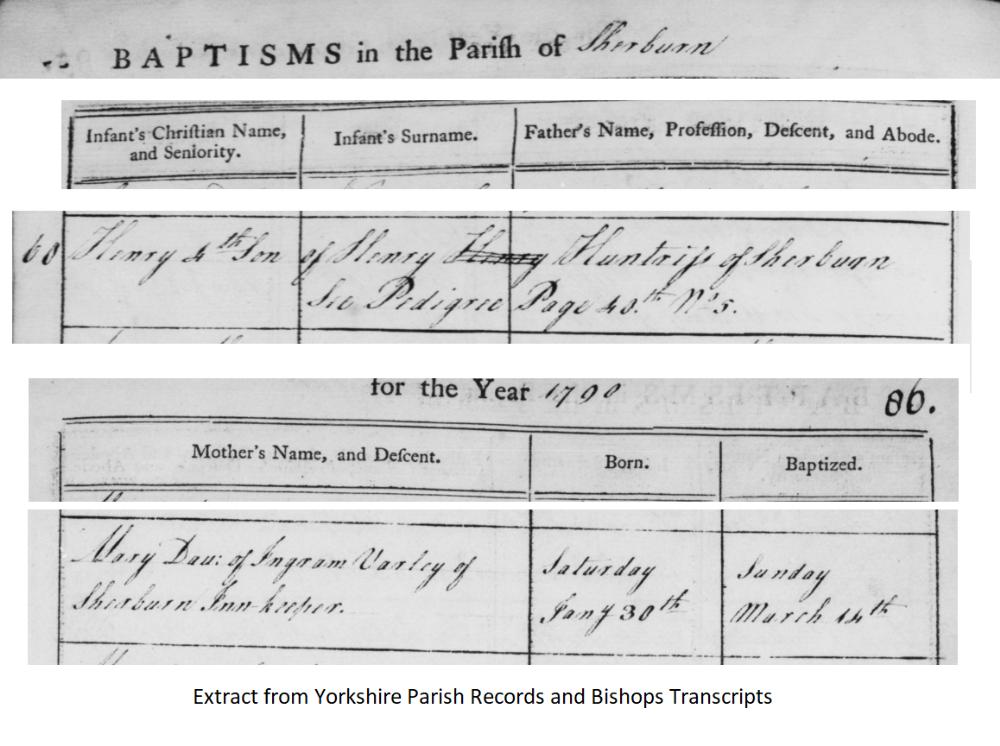 BAPTISMS in the Pariſh of Sherburn
Infant's Chriſtian Name, and Seniority.
Infant's Surname.
Father's Name, Profeſſion, Deſcent, and Abode.
60 Henry 4th Son of Henry Henry Huntriſs of Sherburn
See Pedigree Page No 5.
for the Year 1790 86.
Mother's Name, and Deſcent.
Born.
Baptized.
Mary Dau: of Ingram Varley of
Sherburn Inn-keeper.
Saturday
Jany 30th
Sunday
March 14th
Extract from Yorkshire Parish Records and Bishops Transcripts